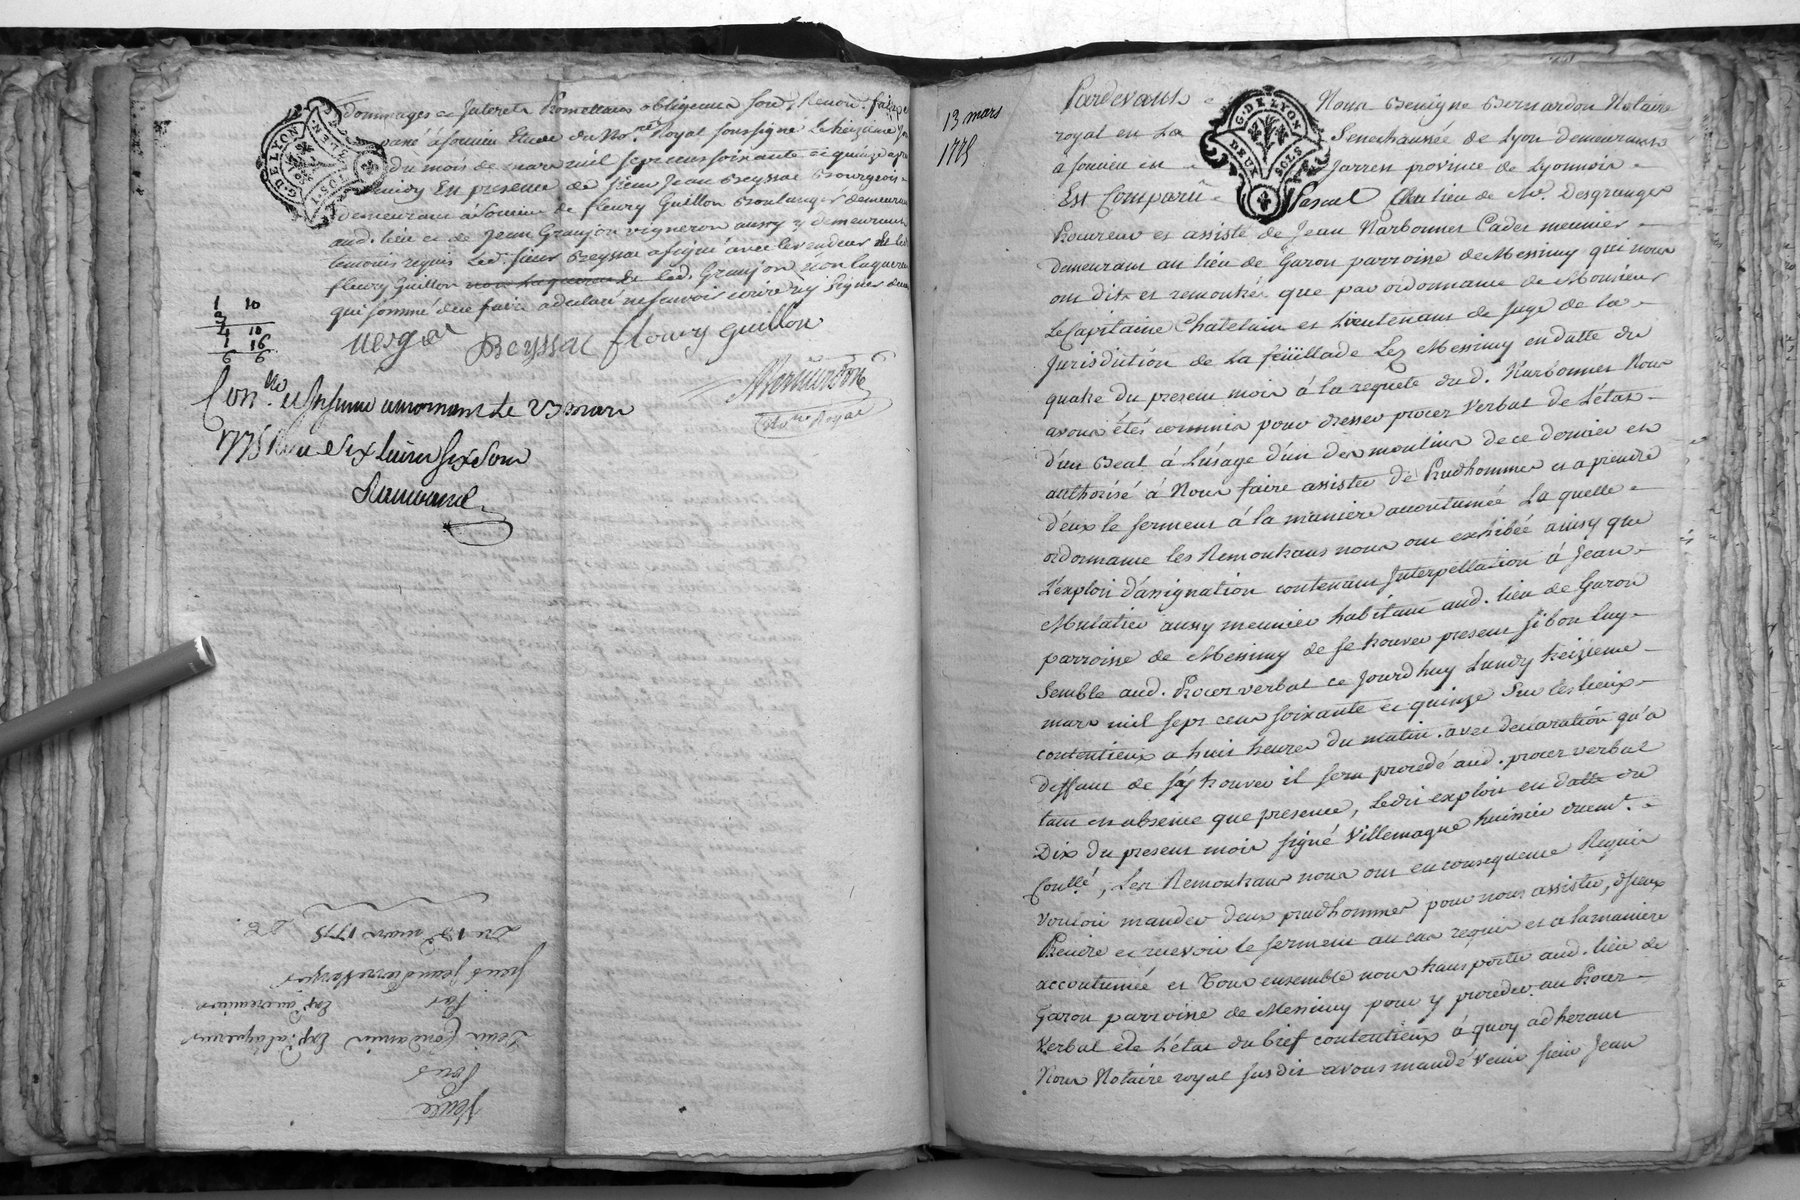 dommages et Interets Promettans obligeans soud. Renon. fait
passé à soucieu Etude du No.re Royal soussigné le treizieme
du mois de mars mil sept cens soixante et quinze apres
midy En presence de sieur Jean Beyssac Bourgeois
demeurant à soucieu de fleury Guillon Boulanger demeurant
aud. lieu et de Jean Granjon vigneron aussy y demeurant
temoins requis Led. sieur Beyssac a signé avec le vendeur et led.
fleury Guillon non laquereur de led. Granjon non laquereur
qui sommé de ce faire a declaré ne scavoir ecrire ny signer
Beyssac fleury guillon
1 10
4 10
1 16
6 6
Bernardon
No.re Royal
Con.lé et Insinué a mornant Le 23 mars
1775 Reçu Six livres Six sous
Du 13e mars 1775
sieur Jean Pierre Verger
Par
Louis Condamin
Pour
Vente
13 mars
1775
G. DE LYON
DEUX SOLS
Pardevant Nous Benigne Bernardon Notaire
royal en La Senechaussée de Lyon demeurant
à soucieu en Jarrest province de Lyonnois
Est Comparû Pascal Charlieu de Me. Desgranges
Procureur et assisté de Jean Narbonnet Cadet meunier
demeurant au lieu de Garon parroisse de Messimy qui nous
ont dit et remontré que par ordonnance de Monsieur
Le Capitaine Chatelain et Lieutenant de Juge de la
Jurisdiction de La feüillade Lez Messimy en datte du
quatre du present mois à la requete dud. Narbonnet Nous
avons étés commis pour dresser procez verbal de L'état
d'un Beal à L'usage d'un des moulins de ce dernier et
authorisé à Nous faire assister de Prudhommes et a prendre
d'eux le serment à la maniere accoutumée La quelle
ordonnance les Remontrans nous ont exhibée ainsy que
L'exploit d'assignation contenant Interpellation à Jean
Mulatier aussy meunier habitant aud. lieu de Garon
parroisse de Messimy de se trouver present si bon luy
semble aud. Procez verbal ce jourd'huy Lundy treizieme
mars mil sept cens soixante et quinze sur les lieux
contentieux a huit heures du matin, avec declaration qu'a
deffaut de s'y trouver il sera procedé aud. procez verbal
tant en absence que presence, Ledit exploit en datte du
Dix du present mois signé Villemagne huissier duem.t
Conllé, Les Remontrans nous ont en consequence Requis
vouloir mander deux prudhommes pour nous assister, d'jceux
Prendre et recevoir le serment au cas requis et a la maniere
accoutumée et Tous ensemble nous transporter aud. lieu de
Garon parroisse de Messimy pour y proceder au Procez
Verbal et de L'état du bief contentieux à quoy adherant
Nous Notaire royal susdit avons mandé venir sieur Jean